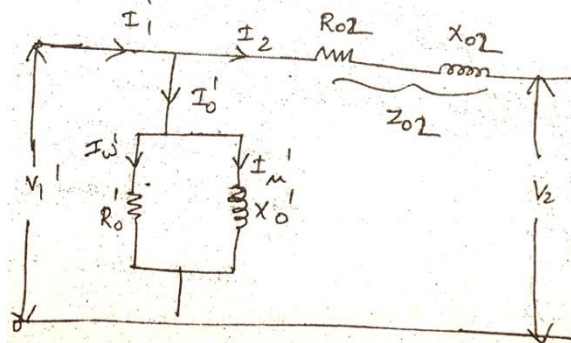 I₁' I₂ R₀₂ X₀₂
I₀' Z₀₂
I_ω' I_μ'
V₁' R₀' X₀' V₂